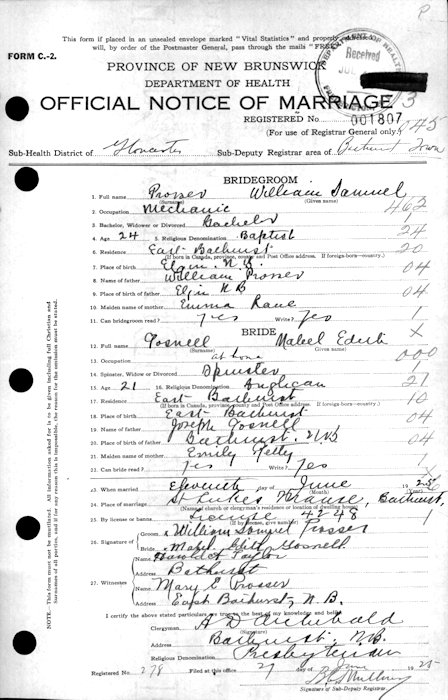 This form if placed in an unsealed envelope marked "Vital Statistics" and
will, by order of the Postmaster General, pass through the mails "FREE"
FORM C.-2.
PROVINCE OF NEW BRUNSWICK
DEPARTMENT OF HEALTH
Received
OFFICIAL NOTICE OF MARRIAGE
REGISTERED No. 001807
(For use of Registrar General only.) 745
Sub-Health District of Gloucester Sub-Deputy Registrar area of Bathurst Town
BRIDEGROOM
1. Full name Prosser William Samuel
(Surname) (Given names)
2. Occupation Mechanic 462
3. Bachelor, Widower or Divorced Bachelor 1
4. Age 24 5. Religious Denomination Baptist 24
6. Residence East Bathurst 20
(If born in Canada, province, county and Post Office address. If foreign-born—country)
7. Place of birth Elgin. N.B. 04
8. Name of father William Prosser
9. Place of birth of father Elgin NB 04
10. Maiden name of mother Emma
11. Can bridegroom read? yes Write? yes 1
BRIDE
12. Full name Gosnell Mabel Edith X
(Surname) (Given names)
13. Occupation at home 000
14. Spinster, Widow or Divorced Spinster 1
15. Age 21 16. Religious Denomination Anglican 21
17. Residence East Bathurst 10
(If born in Canada, province, county and Post Office address. If foreign-born—country)
18. Place of birth East Bathurst 04
19. Name of father Joseph Gosnell
20. Place of birth of father Bathurst. NB 04
21. Maiden name of mother Emily
22. Can bride read? yes Write? yes 1
23. When married Eleventh day of June 1925
(Month)
24. Place of marriage St Lukes Manse, Bathurst,
(Name of church or clergyman's residence or location of dwelling house)
25. By license or banns License 4248
(If by license, give number)
26. Signature of Groom William Samuel Prosser
Bride Mabel Edith Gosnell
27. Witnesses Name Harold Taylor
Bathurst
Name Mary E Prosser
East Bathurst, N.B.
I certify the above stated particulars are true to the best of my knowledge and belief.
Clergyman A D Archibald
(Signature)
Bathurst. NB
Presbyterian
Registered No. 278 Filed at this office 27 day of June 1925
Signature of Sub-Deputy Registrar
NOTE. This form must not be mutilated. All information asked for is to be given including full Christian and
Surnames of all parties, and if this is impossible, the reason for the omission must be stated.